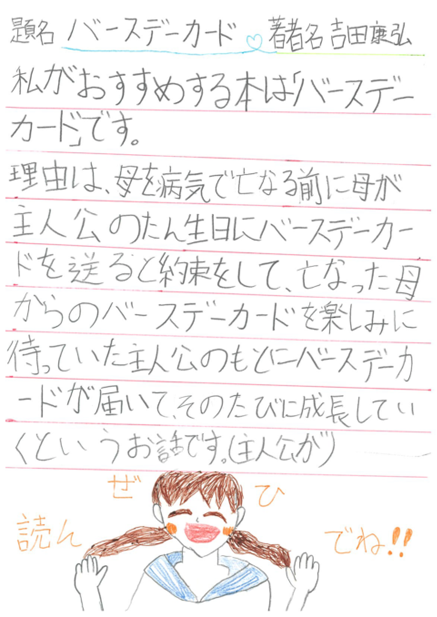 題名 バースデーカード 著者名 吉田康弘
私がおすすめする本は「バースデー
カード」です。
理由は、母を病気で亡なる前に母が
主人公のたん生日にバースデーカー
ドを送ると約束をして、亡なった母
からのバースデーカードを楽しみに
待っていた主人公のもとにバースデーカ
ードが届いて、そのたびに成長してい
くというお話です。(主人公が)
ぜひ
読んでね!!